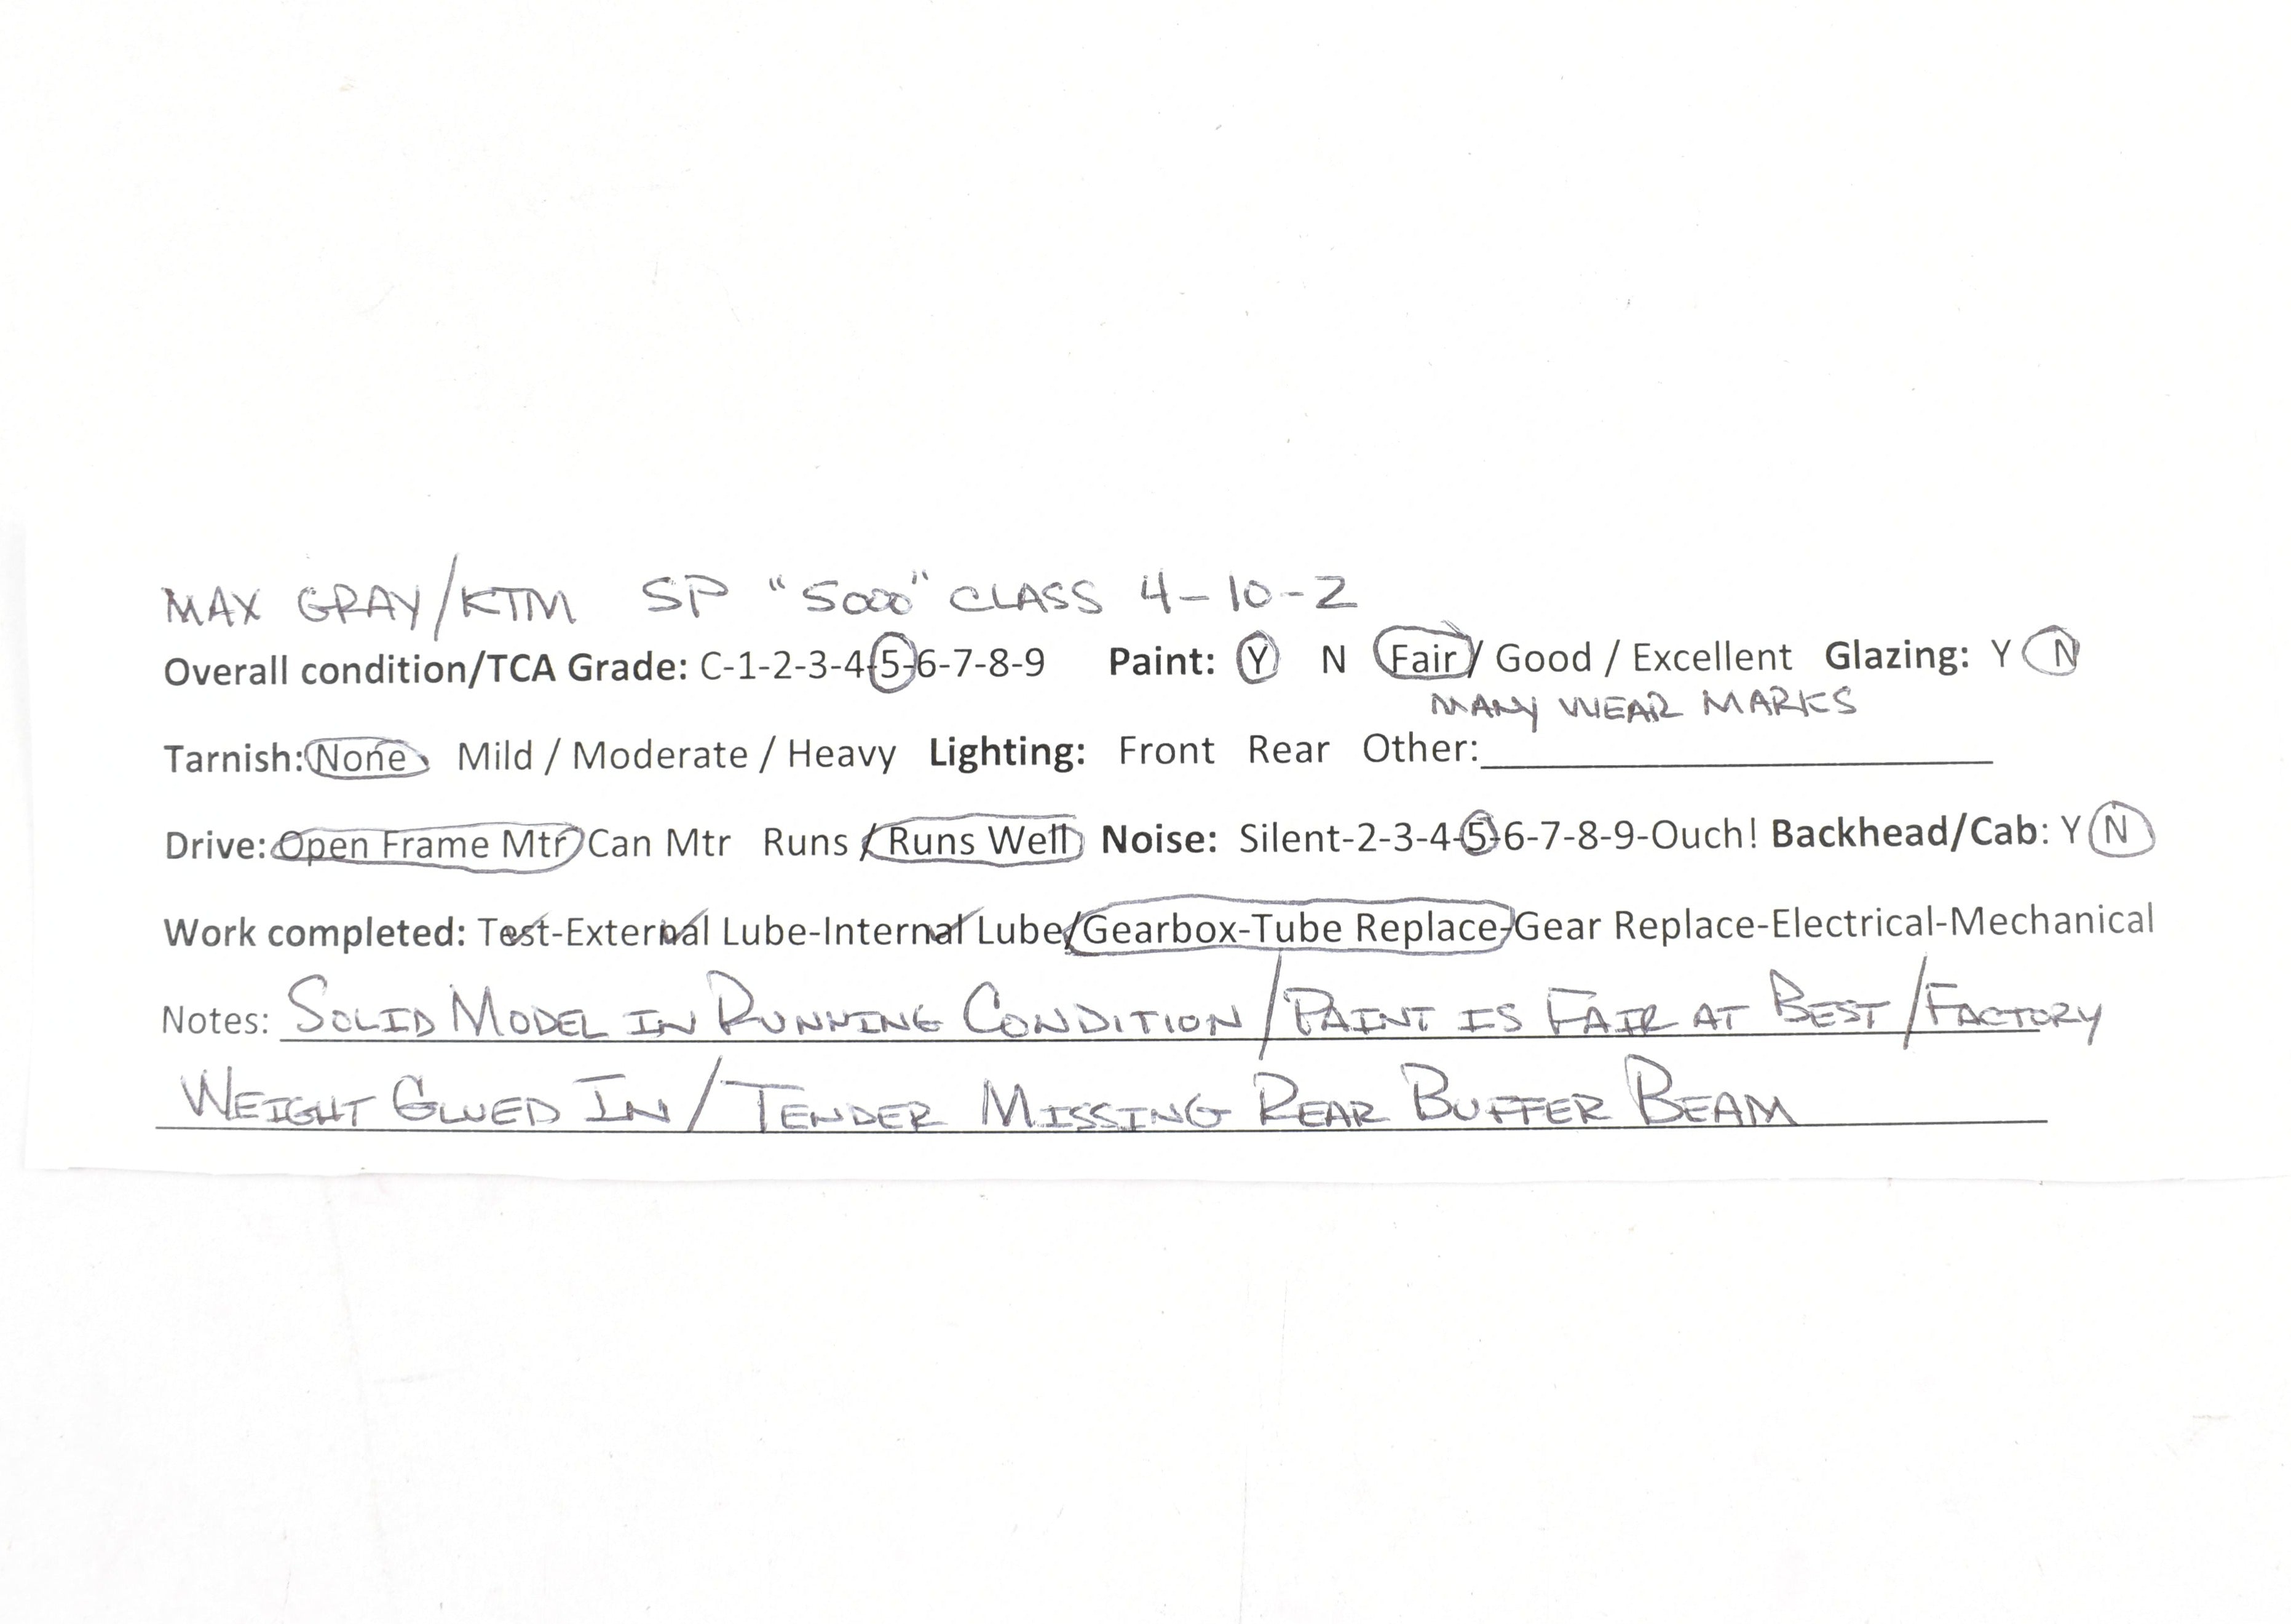 MAX GRAY/KTM SP "5000" CLASS 4-10-2
Overall condition/TCA Grade: C-1-2-3-4-5-6-7-8-9 Paint: Y N Fair / Good / Excellent Glazing: Y N
MANY WEAR MARKS
Tarnish: None Mild / Moderate / Heavy Lighting: Front Rear Other:
Drive: Open Frame Mtr Can Mtr Runs / Runs Well Noise: Silent-2-3-4-5-6-7-8-9-Ouch! Backhead/Cab: Y N
Work completed: Test-External Lube-Internal Lube/Gearbox-Tube Replace-Gear Replace-Electrical-Mechanical
Notes: SOLID MODEL IN RUNNING CONDITION/PAINT IS FAIR AT BEST/FACTORY
WEIGHT GLUED IN/TENDER MISSING REAR BUFFER BEAM